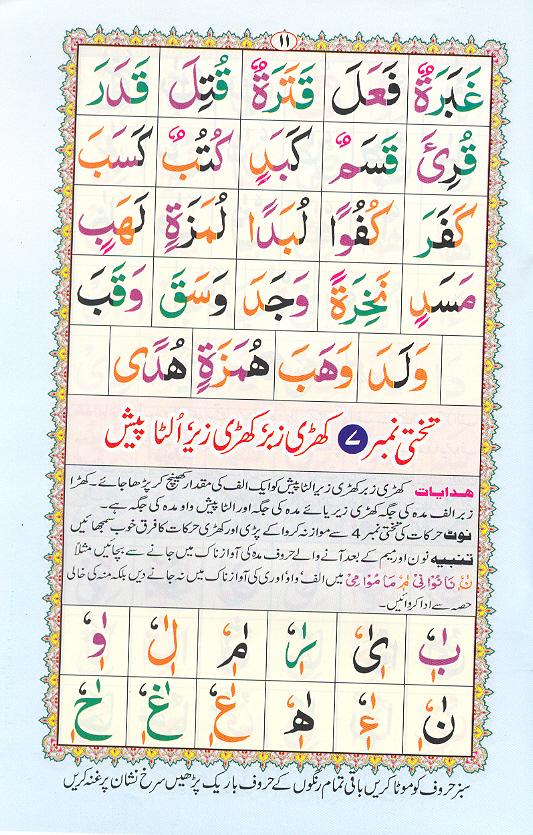 ۱۱
غَبَرَةٌ فَعَلَ قَتَرَةٌ قُتِلَ قَدَرَ
قُرِئَ قَسَمٌ كَبَدٍ كُتُبٌ كَسَبَ
كَفَرَ كُفُوًا لُبَدًا لُمَزَةٍ لَهَبٍ
مَسَدٍ نَخِرَةً وَجَدَ وَسَقَ وَقَبَ
وَلَدَ وَهَبَ هُمَزَةٍ هُدًى
تختی نمبر ۷ کھڑی زبر کھڑی زیر اُلٹا پیش
ھدایات کھڑی زبر کھڑی زیر الٹا پیش کو ایک الف کی مقدار کھینچ کر پڑھا جائے۔ کھڑا
زبر الف مدہ کی جگہ کھڑی زیر یائے مدہ کی جگہ اور الٹا پیش واو مدہ کی جگہ ہے۔
نوٹ حرکات کی تختی نمبر 4 سے موازنہ کروا کے پڑی اور کھڑی حرکات کا فرق خوب سمجھائیں
تنبیہ نون اور میم کے بعد آنے والے حروف مدہ کی آواز ناک میں جانے سے بچائیں مثلاً
نَا نُوْا نِيْ مَا مُوْا مِيْ میں الف واو اور ی کی آواز ناک میں نہ جانے دیں بلکہ منہ کی خالی
حصہ سے ادا کروائیں۔
ب ی ر م ل و
ن ء ھ ع غ ح
سبز حروف کو موٹا کریں باقی تمام رنگوں کے حروف باریک پڑھیں سرخ نشان پر غنہ کریں